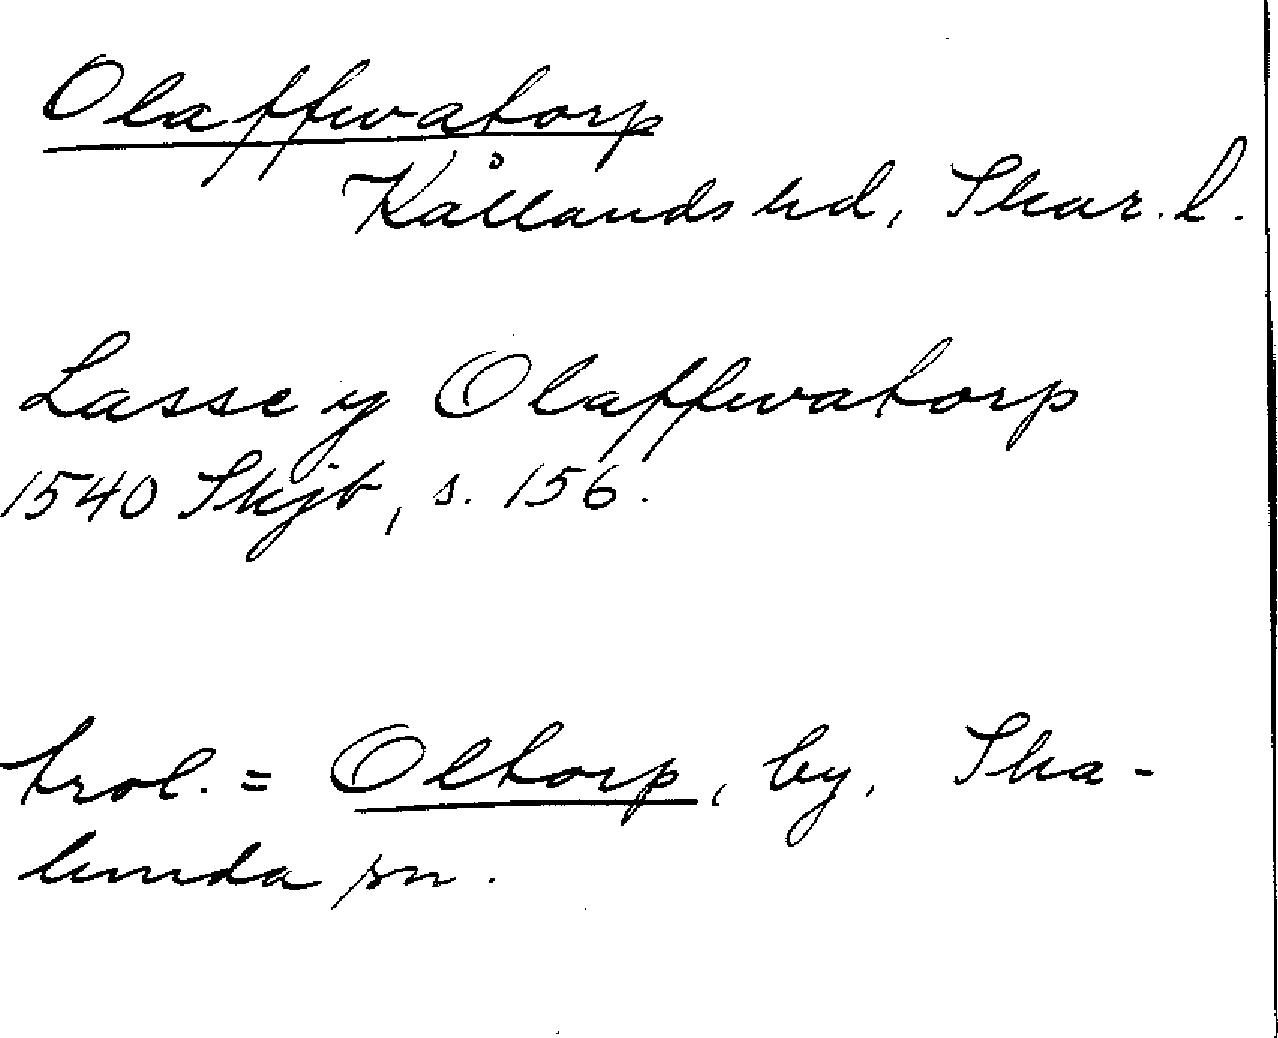 Olaffwatorp
Kållands hd, Skar. l.
Lasse y Olaffwatorp
1540 Skjb, s. 156.
trol. = Oltorp, by, Ska-
lunda sn.